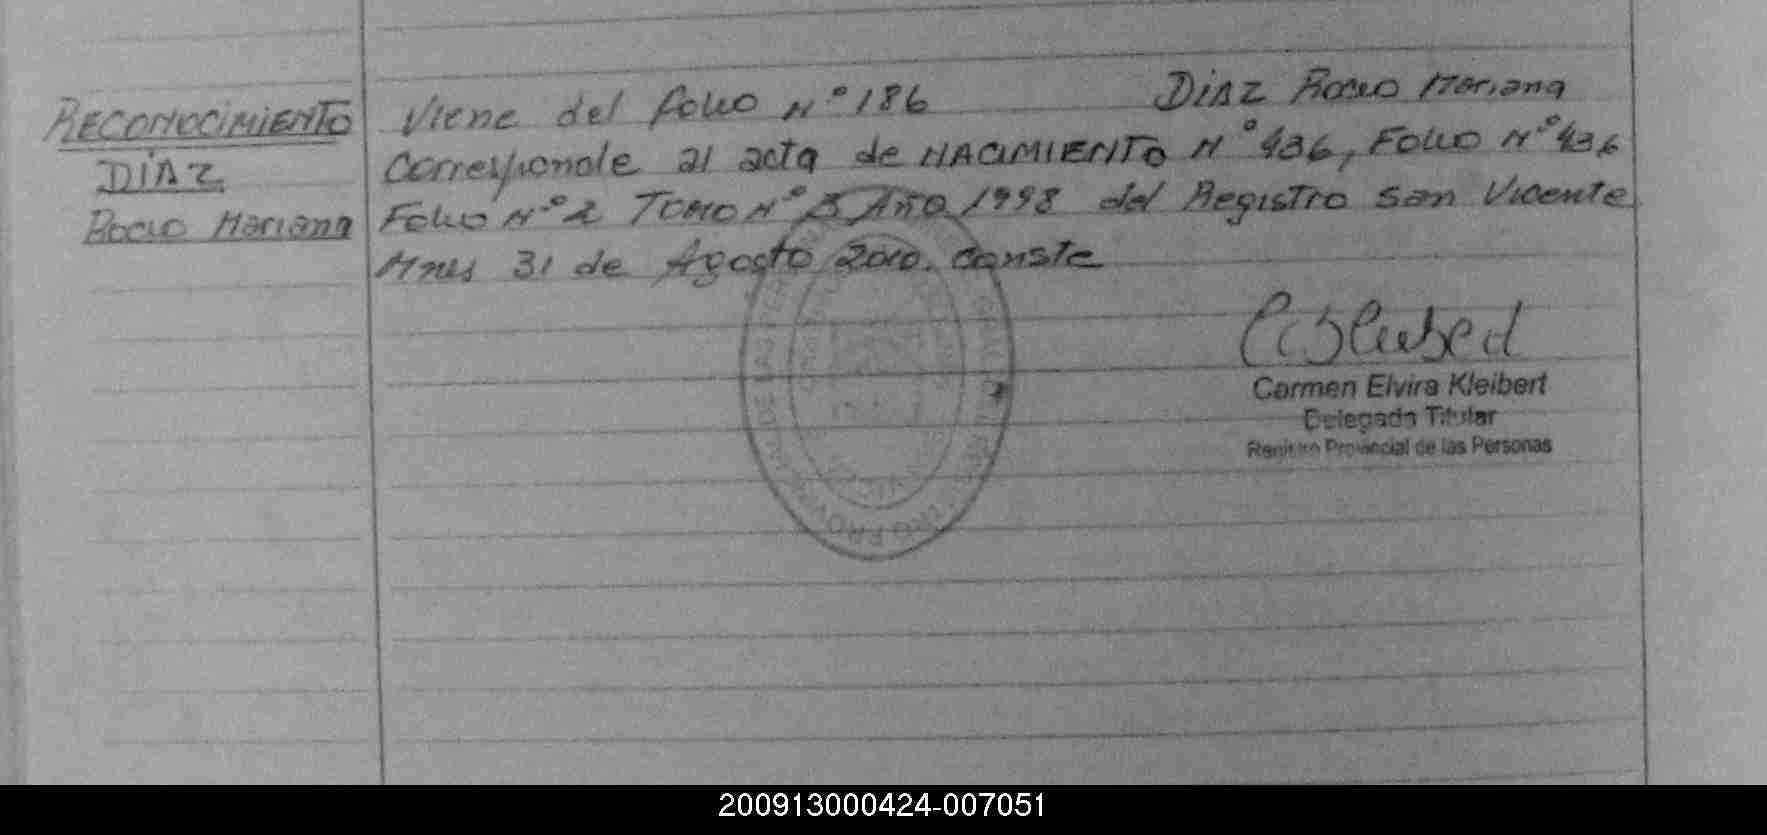 RECONOCIMIENTO
DIAZ
Rocio Mariana
Viene del folio N° 186 DIAZ Rocio Mariana
Corresponde al acta de NACIMIENTO N° 436, Folio N° 436
Folio N° 2 TOMO N° 3 Año 1998 del Registro San Vicente
Mnes 31 de Agosto 2010. conste
Carmen Elvira Kleibert
Delegada Titular
Registro Provincial de las Personas
200913000424-007051